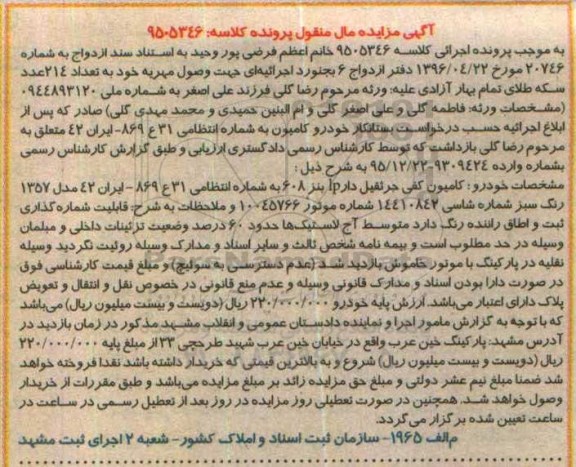 آگهی مزایده مال منقول پرونده کلاسه: ۹۵۰۵۳۴۶
به موجب پرونده اجرائی کلاسه ۹۵۰۵۳۴۶ خانم اعظم فرضی پور وحید به استناد سند ازدواج به شماره
۲۰۷۴۶ مورخ ۱۳۹۶/۰۴/۲۲ دفتر ازدواج ۶ بجنورد اجرائیه‌ای جهت وصول مهریه خود به تعداد ۲۱۴عدد
سکه طلای تمام بهار آزادی علیه: ورثه مرحوم رضا گلی فرزند علی اصغر به شماره ملی ۰۹۴۴۸۹۳۱۲۰
(مشخصات ورثه: فاطمه گلی و علی اصغر گلی و ام البنین حمیدی و محمد مهدی گلی) صادر که پس از
ابلاغ اجرائیه حسب درخواست بستانکار خودرو کامیون به شماره انتظامی ۳۱ع ۸۶۹- ایران ۴۲ متعلق به
مرحوم رضا گلی بازداشت که توسط کارشناس رسمی دادگستری ارزیابی و طبق گزارش کارشناس رسمی
بشماره وارده ۹۳۰۹۴۲۴-۹۵/۱۲/۲۲ به شرح ذیل:
مشخصات خودرو: کامیون کفی جرثقیل دارlp بنز ۶۰۸ به شماره انتظامی ۳۱ع ۸۶۹ - ایران ۴۲ مدل ۱۳۵۷
رنگ سبز شماره شاسی ۱۴۴۱۰۸۴۲ شماره موتور ۱۰۰۴۵۷۶۶ و ملاحظات به شرح: قابلیت شماره گذاری
ثبت و اطاق راننده رنگ دارد متوسط آج لاستیک‌ها حدود ۶۰ درصد وضعیت تزئینات داخلی و مبلمان
وسیله در حد مطلوب است و بیمه نامه شخص ثالث و سایر اسناد و مدارک وسیله روئیت نگردید وسیله
نقلیه در پارکینگ با موتور خاموش بازدید شد (عدم دسترسی به سوئیچ) و مبلغ قیمت کارشناسی فوق
در صورت دارا بودن اسناد و مدارک قانونی وسیله و عدم منع قانونی در خصوص نقل و انتقال و تعویض
پلاک دارای اعتبار می‌باشد. ارزش پایه خودرو ۲۲۰/۰۰۰/۰۰۰ ریال (دویست و بیست میلیون ریال) می‌باشد
که با توجه به گزارش مامور اجرا و نماینده دادستان عمومی و انقلاب مشهد مذکور در زمان بازدید در
آدرس مشهد: پارکینگ خین عرب واقع در خیابان خین عرب شهید طرحچی ۳۳ از مبلغ پایه ۲۲۰/۰۰۰/۰۰۰
ریال (دویست و بیست میلیون ریال) شروع و به بالاترین قیمتی که خریدار داشته باشد نقدا فروخته خواهد
شد ضمنا مبلغ نیم عشر دولتی و مبلغ حق مزایده زائد بر مبلغ مزایده می‌باشد و طبق مقررات از خریدار
وصول خواهد شد. همچنین در صورت تعطیلی روز مزایده در روز بعد از تعطیل رسمی در ساعت در
ساعت تعیین شده برگزار می گردد.
م‌الف ۱۹۶۵- سازمان ثبت اسناد و املاک کشور- شعبه ۲ اجرای ثبت مشهد